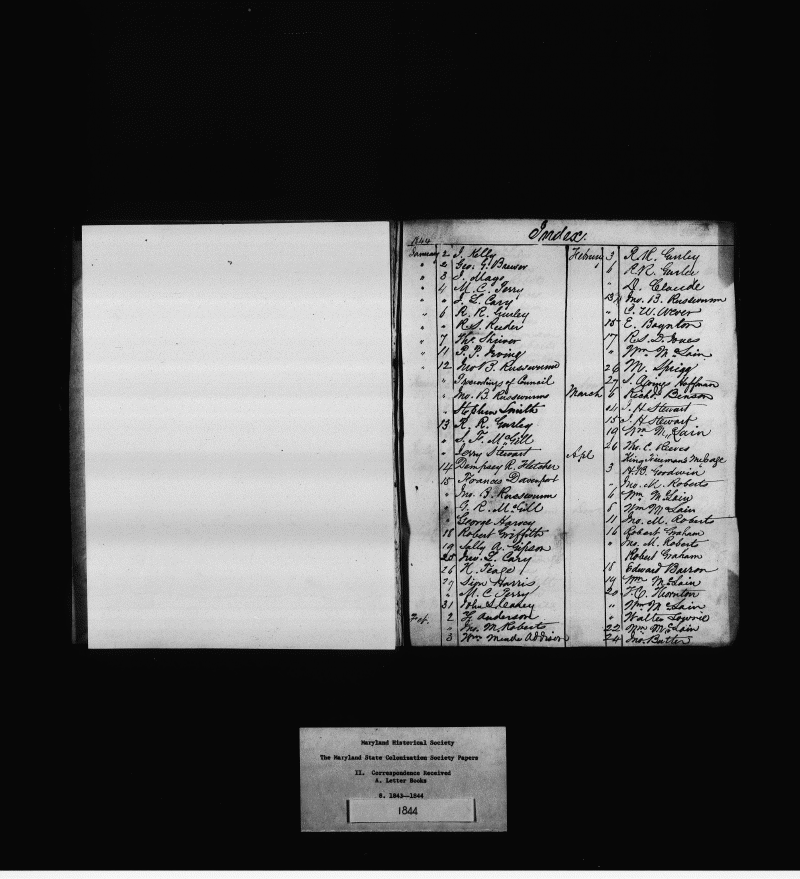 Index.
1844
January 2 J. Kelly
" 2 Geo: G. Brewer
" 3 J. Mayo
" 4 M. C. Terry
" " J. L. Cary
" 6 R. R. Gurley
" " R. S. Reeder
" 7 Tho. Shriver
" 11 P. P. Irving
" 12 Jno B. Russwurm
" Proceedings of Council
" Jno. B. Russwurm
" Stephen Smith
13 R. R. Gurley
" S. F. McGill
" Jerry Stewart
14 Dempsey R. Fletcher
15 Frances Davenport
" Jno. B. Russwurm
" G. R. McGill
" George Harvey
18 Robert Griffith
19 Sally A. Gibson
25 Jno. L. Cary
26 H. Teage
27 Sion Harris
" M. C. Terry
31 John S.
Feb. 2 Anderson
" Jno. M. Roberts
3 Wm Meade Addison
3 R. R. Gurley
6 R. R. Gurley
" D. Claude
13 Jno. B. Russwurm
" C. W. Wever
15 E. Boynton
17 R. S. D. Jones
" Wm McLain
26 M. Sprigg
27 S. Hoffman
March 6 Richd Benson
14 J. H. Stewart
15 J. H. Stewart
19 Wm McLain
26 Tho. C. Reeves
King Freeman's Message
Apl 3 H. B. Goodwin
" Jno. M. Roberts
6 Wm McLain
8 Wm McLain
11 Jno. M. Roberts
16 Robert Graham
" Jno. M. Roberts
Robert Graham
18 Edward Barron
19 Wm McLain
20 Thornton
" Wm McLain
" Walter Lowrie
22 Wm McLain
24 Jno. Butler
Maryland Historical Society
The Maryland State Colonization Society Papers
II. Correspondence Received
A. Letter Books
8. 1843--1844
1844